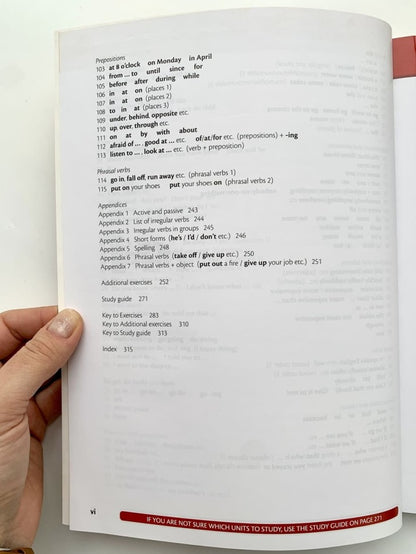 Prepositions
103 at 8 o'clock on Monday in April
104 from ... to until since for
105 before after during while
106 in at on (places 1)
107 in at on (places 2)
108 to in at (places 3)
109 under, behind, opposite etc.
110 up, over, through etc.
111 on at by with about
112 afraid of ... , good at ... etc. of/at/for etc. (prepositions) + -ing
113 listen to ... , look at ... etc. (verb + preposition)
Phrasal verbs
114 go in, fall off, run away etc. (phrasal verbs 1)
115 put on your shoes put your shoes on (phrasal verbs 2)
Appendices
Appendix 1 Active and passive 243
Appendix 2 List of irregular verbs 244
Appendix 3 Irregular verbs in groups 245
Appendix 4 Short forms (he's / I'd / don't etc.) 246
Appendix 5 Spelling 248
Appendix 6 Phrasal verbs (take off / give up etc.) 250
Appendix 7 Phrasal verbs + object (put out a fire / give up your job etc.) 251
Additional exercises 252
Study guide 271
Key to Exercises 283
Key to Additional exercises 310
Key to Study guide 313
Index 315
vi
IF YOU ARE NOT SURE WHICH UNITS TO STUDY, USE THE STUDY GUIDE ON PAGE 271